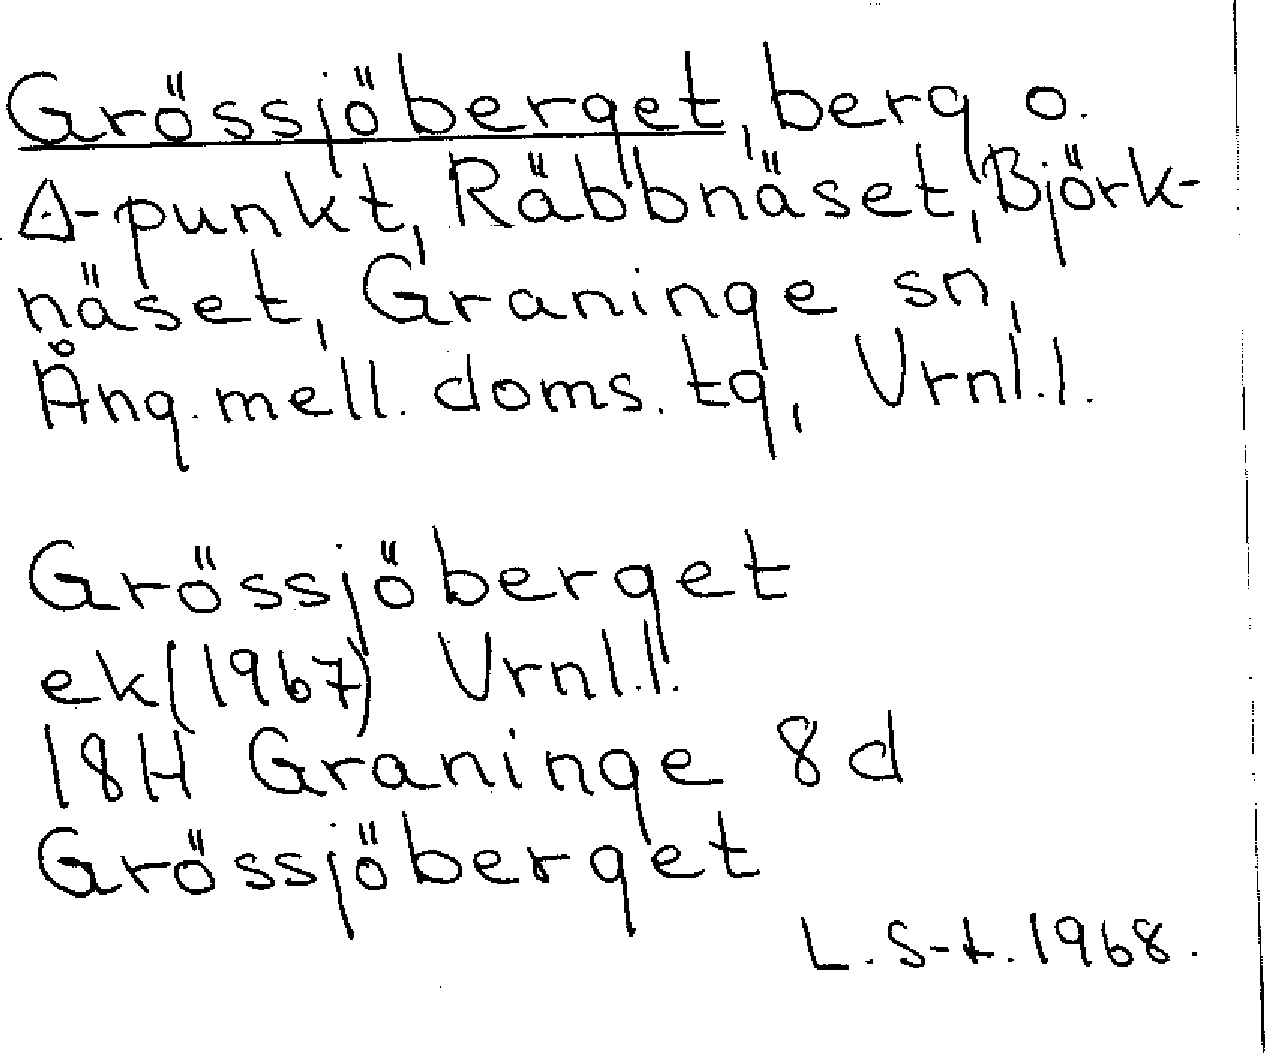 Grössjöberget, berg o.
△-punkt, Räbbnäset, Björk-
näset, Graninge sn,
Ång. mell. doms. tg, Vrnl.l.
Grössjöberget
ek (1967) Vrnl.l.
18H Graninge 8d
Grössjöberget
L. S-t. 1968.